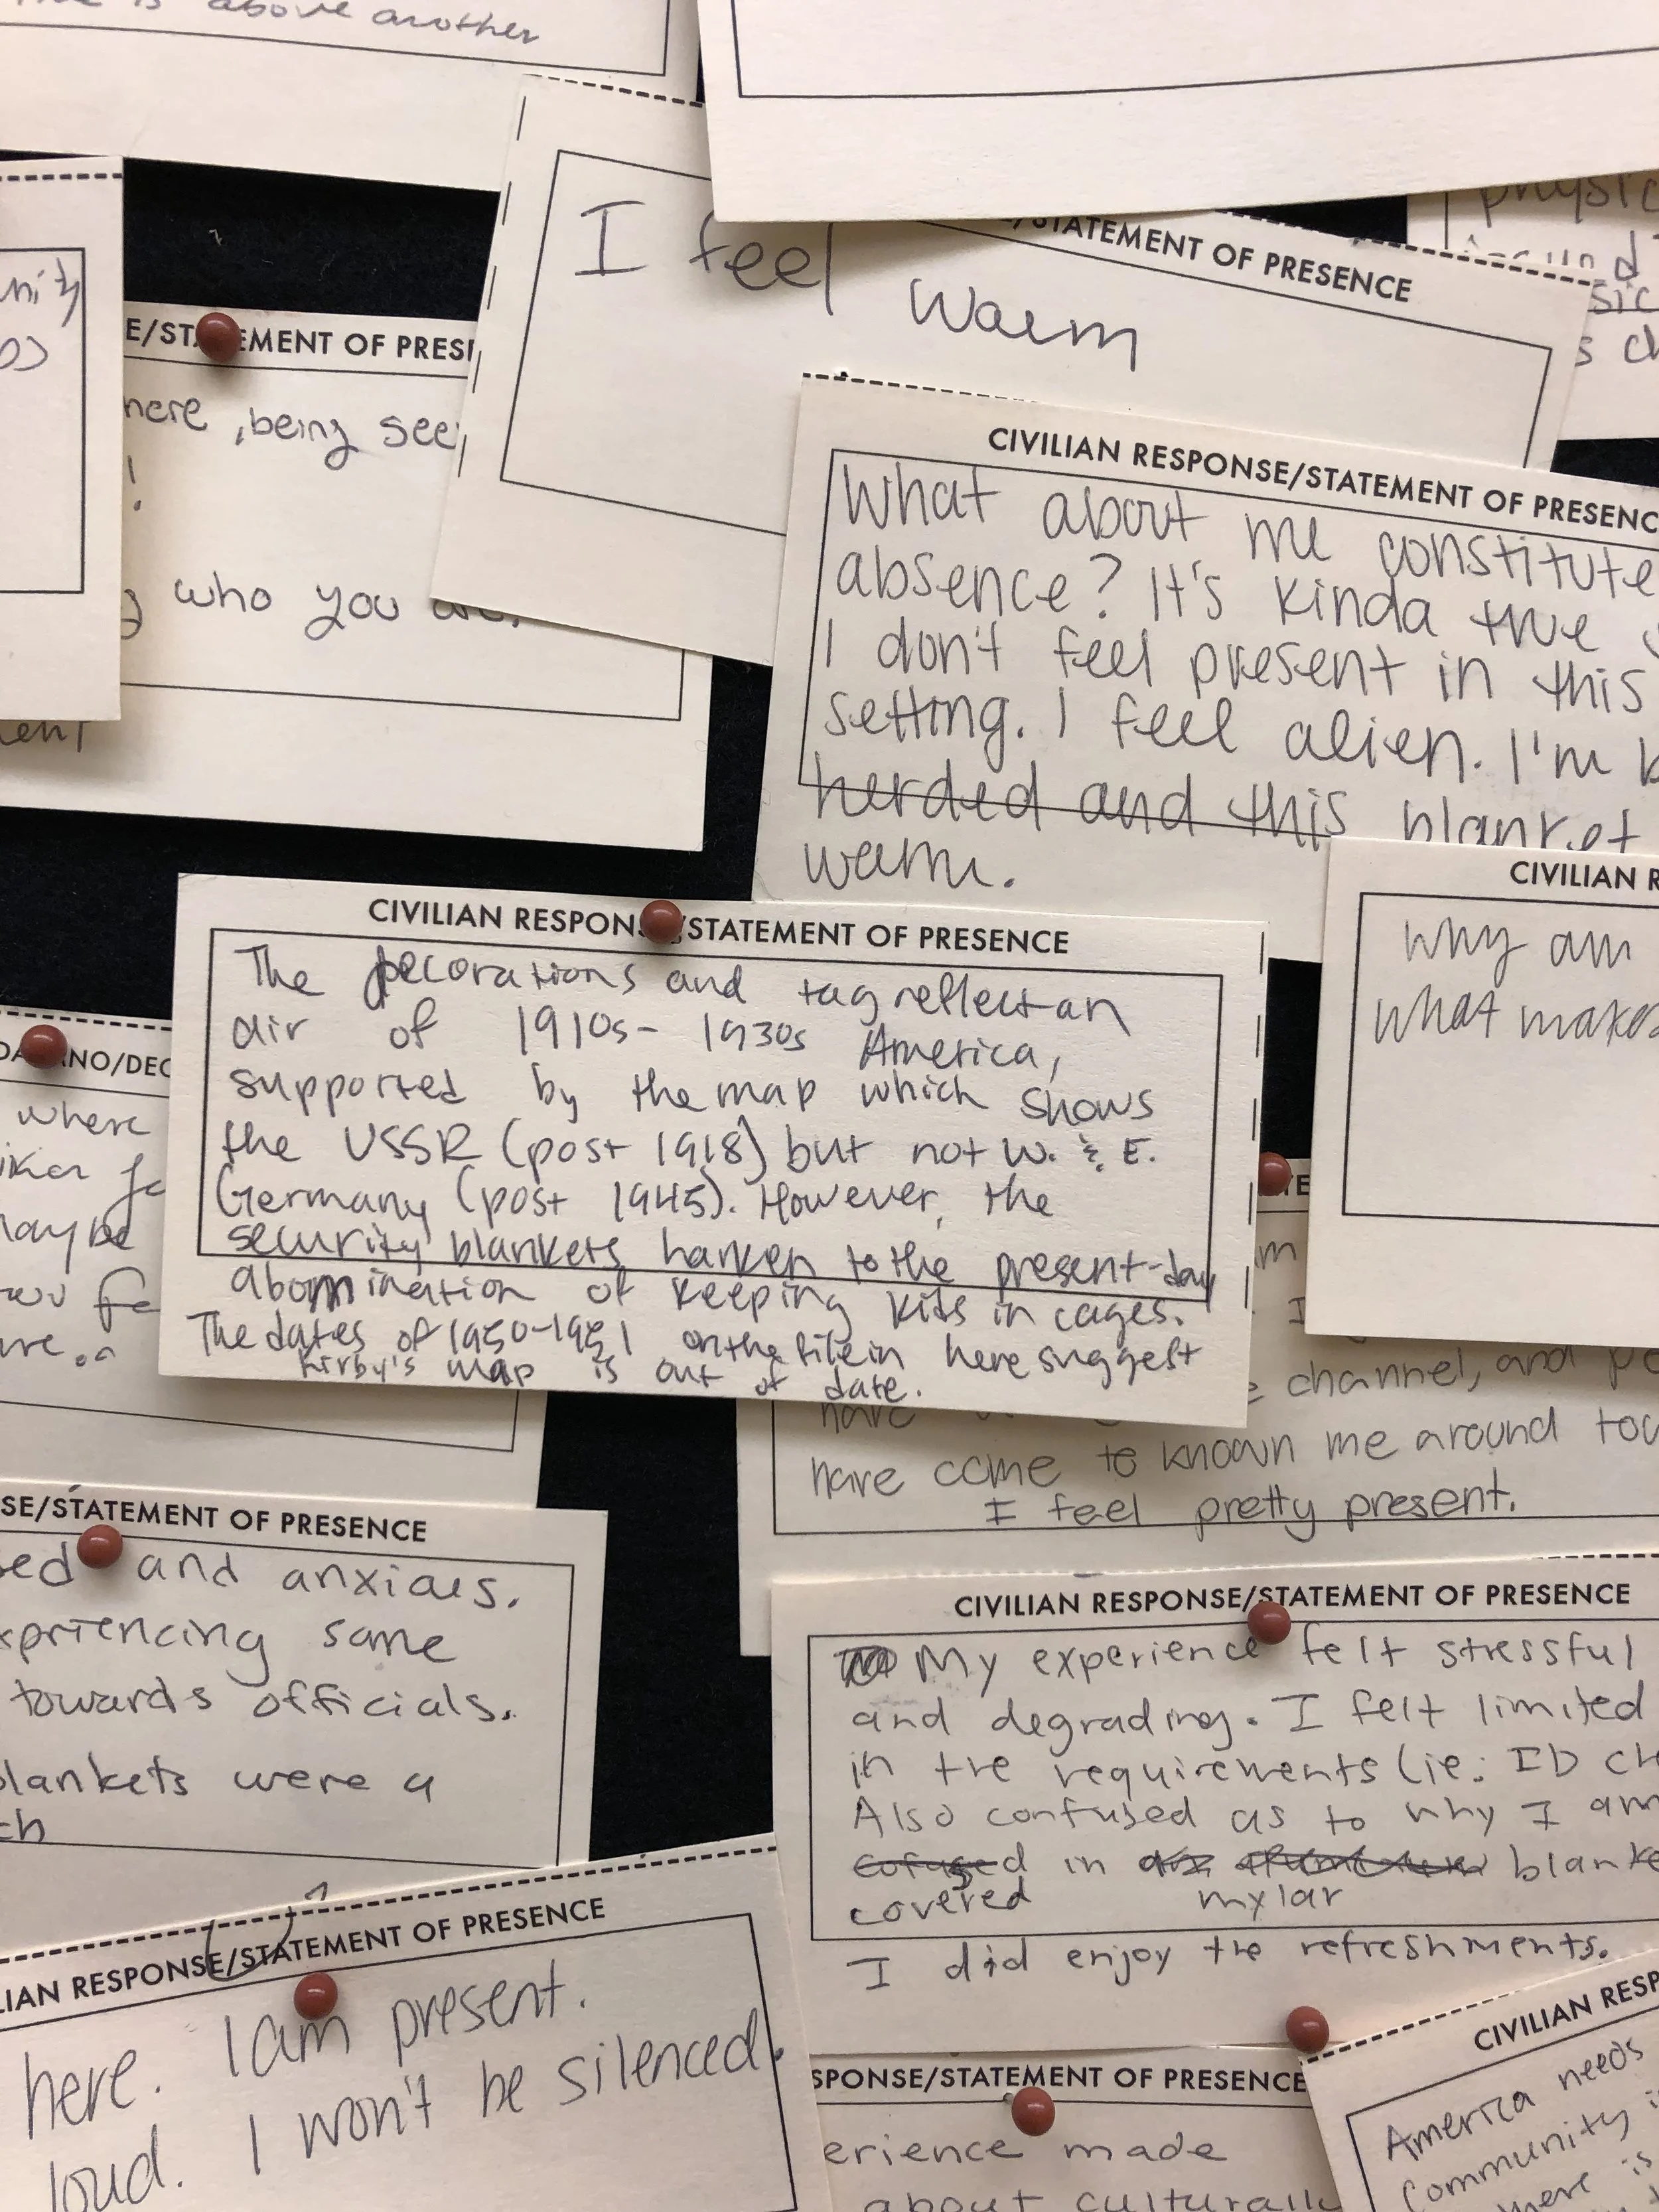 is above another
I feel
warm
/STATEMENT OF PRESENCE
E/STATEMENT OF PRES
here, being see
!
who you are.
CIVILIAN RESPONSE/STATEMENT OF PRESENC
What about me constitute
absence? It's kinda true
I don't feel present in this
setting. I feel alien. I'm b
herded and this blanket
warm.
CIVILIAN RESPONSE/STATEMENT OF PRESENCE
The decorations and tag reflect an
air of 1910s - 1930s America,
supported by the map which shows
the USSR (post 1918) but not W. & E.
Germany (post 1945). However, the
security blankets harken to the present-day
abomination of keeping kids in cages.
The dates of 1950-1951 on the file in here suggest
Kirby's map is out of date.
CIVILIAN R
Why am
what makes
NO/DEC
where
maybe
channel, and pe
have come to known me around tow
I feel pretty present.
SE/STATEMENT OF PRESENCE
sed and anxious.
xpriencing some
towards officials.
lankets were a
ch
CIVILIAN RESPONSE/STATEMENT OF PRESENCE
My experience felt stressful
and degrading. I felt limited
in the requirements (ie: ID ch
Also confused as to why I am
cofused in blanke
covered mylar
I did enjoy the refreshments.
LIAN RESPONSE/STATEMENT OF PRESENCE
here. I am present.
loud. I won't be silenced.
SPONSE/STATEMENT OF PRESENCE
erience made
about culturall
CIVILIAN RESP
America needs
Community i
where is